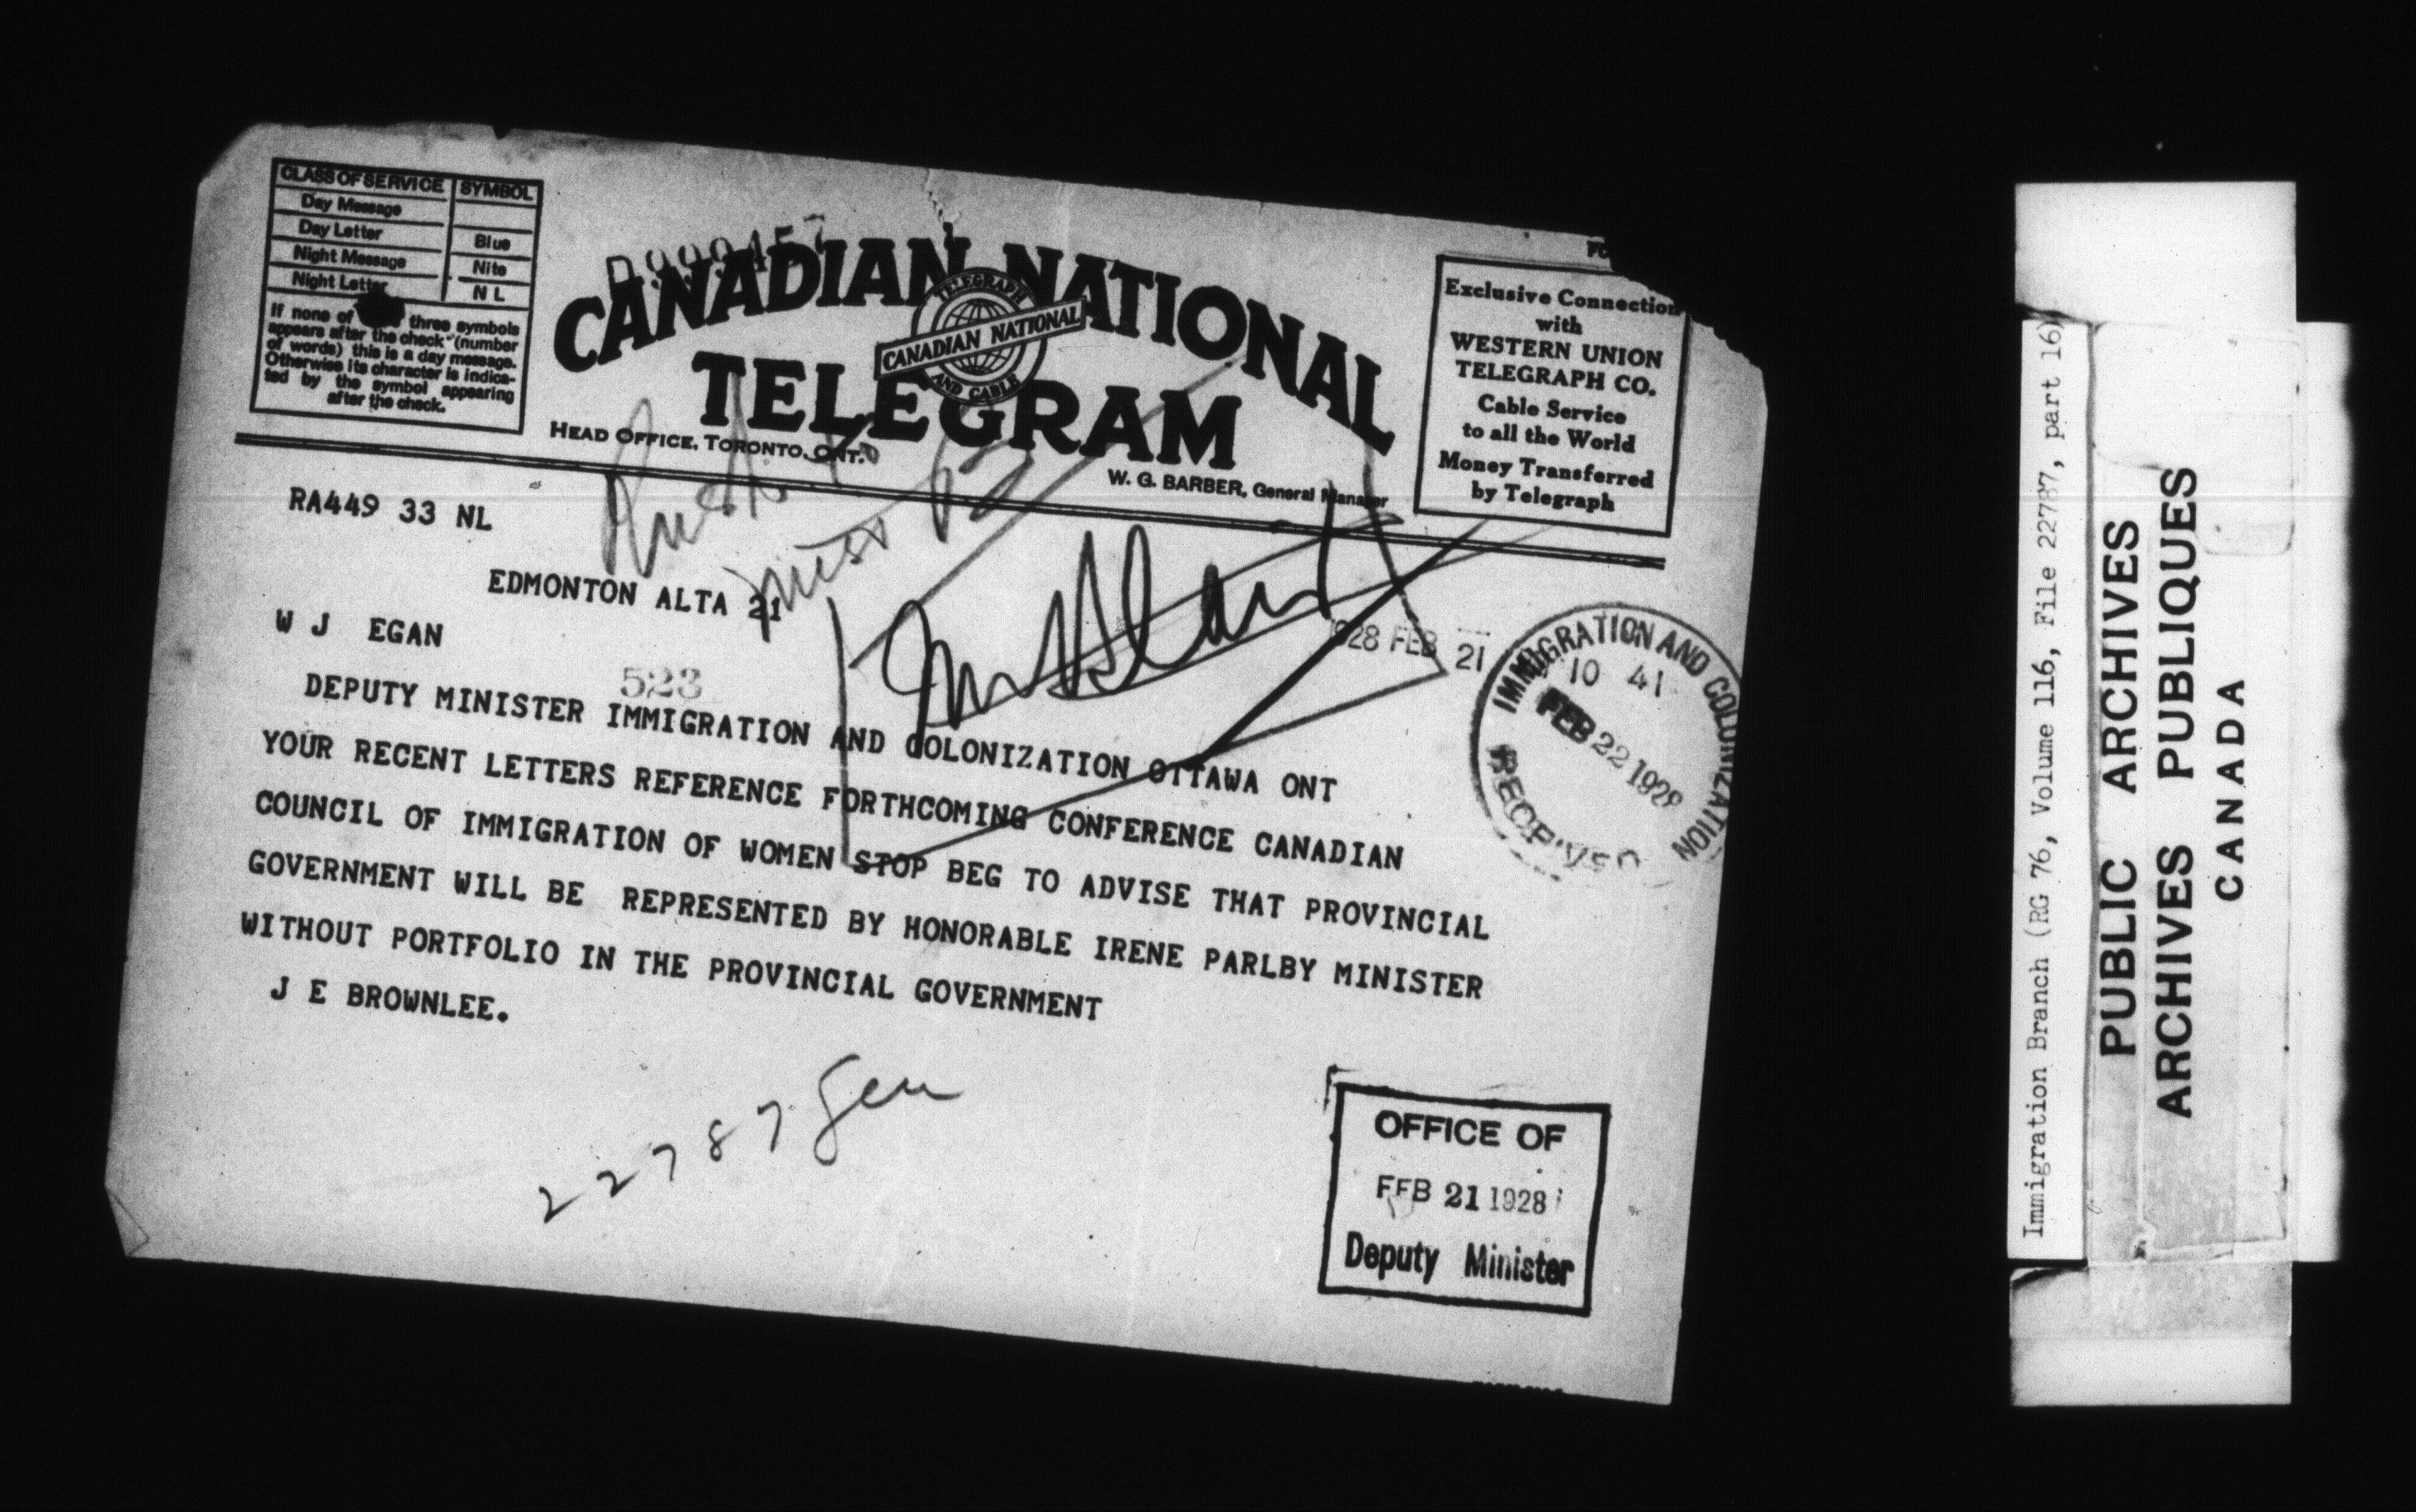 CLASS OF SERVICE SYMBOL
Day Message
Day Letter Blue
Night Message Nite
Night Letter N L
If none of three symbols
appears after the check (number
of words) this is a day message.
Otherwise its character is indica-
ted by the symbol appearing
after the check.
CANADIAN NATIONAL
TELEGRAM
TELEGRAPH
CANADIAN NATIONAL
AND CABLE
HEAD OFFICE, TORONTO, ONT.
W. G. BARBER, General Manager
Exclusive Connection
with
WESTERN UNION
TELEGRAPH CO.
Cable Service
to all the World
Money Transferred
by Telegraph
RA449 33 NL
EDMONTON ALTA 21
1928 FEB 21
10 41
W J EGAN
523
DEPUTY MINISTER IMMIGRATION AND COLONIZATION OTTAWA ONT
YOUR RECENT LETTERS REFERENCE FORTHCOMING CONFERENCE CANADIAN
COUNCIL OF IMMIGRATION OF WOMEN STOP BEG TO ADVISE THAT PROVINCIAL
GOVERNMENT WILL BE REPRESENTED BY HONORABLE IRENE PARLBY MINISTER
WITHOUT PORTFOLIO IN THE PROVINCIAL GOVERNMENT
J E BROWNLEE.
IMMIGRATION AND COLONIZATION
FEB 22 1928
RECEIVED
22787 Gen
OFFICE OF
FEB 21 1928
Deputy Minister
Immigration Branch (RG 76, Volume 116, File 22787, part 16)
PUBLIC ARCHIVES
ARCHIVES PUBLIQUES
CANADA